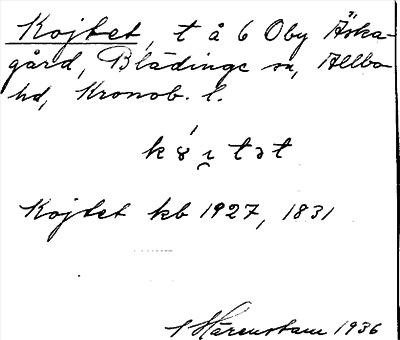 Kojtet, t å 6 Oby Äska-
gård, Blädinge sn, Allbo
hd, Kronob. l.
Kojtet kb 1927, 1831
Härenstam 1936